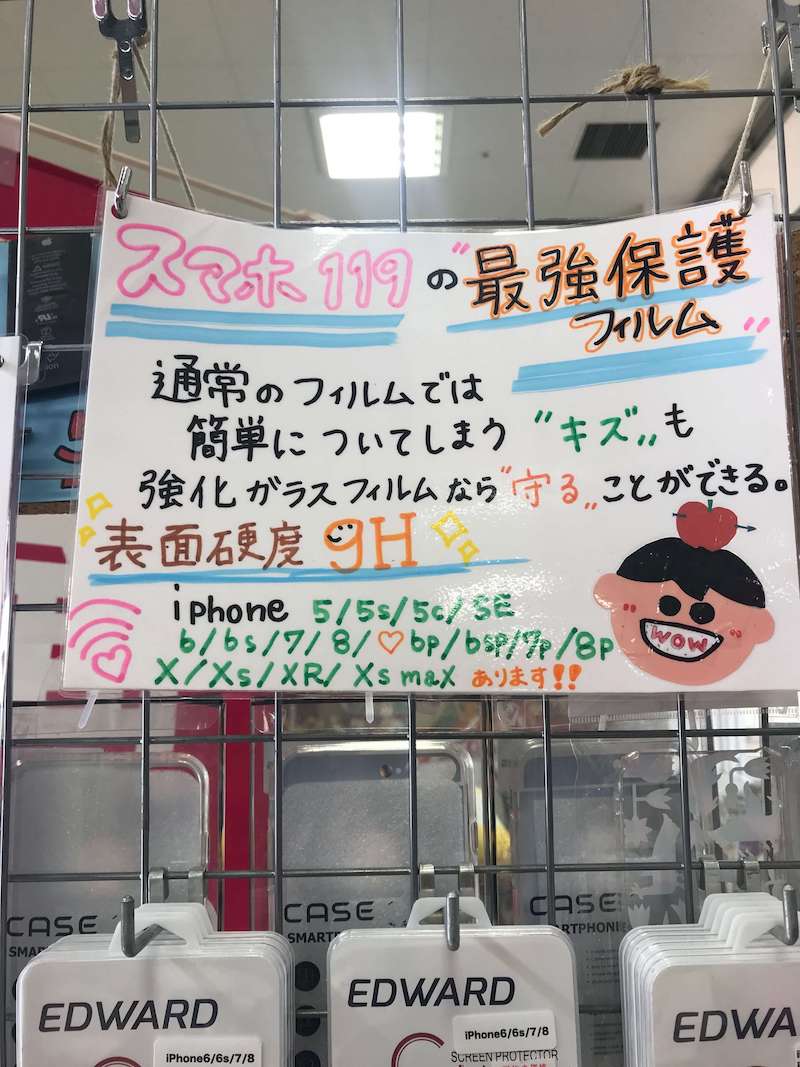 スマホ119の"最強保護
フィルム"
通常のフィルムでは
簡単についてしまう "キズ" も
強化ガラスフィルムなら"守る"ことができる。
表面硬度 9H
iphone 5/5s/5c/SE
6/6s/7/8/♡6p/6sp/7p/8p
X/Xs/XR/Xs max あります!!
WOW
CASE
CASE
CASE
EDWARD
iPhone6/6s/7/8
EDWARD
iPhone6/6s/7/8
SCREEN PROTECTOR
EDWA